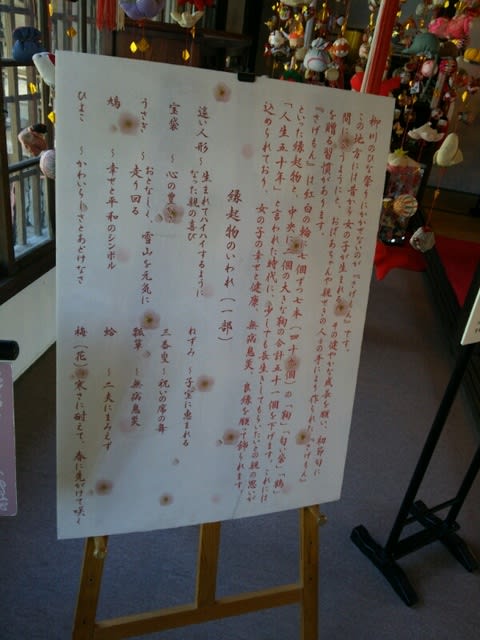 柳川のひな祭りにかかせないのが『さげもん』です。
この地方には昔から女の子が生まれると、その健やかな成長を願い、初節句に
間にあうようにと、おばあちゃんや親せきの人々の手により作られた『さげもん』
を贈る習慣があります。
『さげもん』は紅白の輪に七個ずつ七本（四十九個）の「鞠」「匂い袋」「鶴」
といった縁起物と、中央に二個の大きな鞠の合計五十一個を下げます。これには
「人生五十年」と言われた時代に、少しでも長生きしてもらいたいとの親の思いが
込められており、女の子の幸せと健康、無病息災、良縁を願って飾られます
縁起物のいわれ（一部）
這い人形～生まれてハイハイするように
なった親の喜び
宝袋 ～心の豊かさ
うさぎ ～おとなしく、雪山を元気に
走り回る
鳩 ～幸せと平和のシンボル
ひよこ ～かわいらしさとあどけなさ
ねずみ ～子宝に恵まれる
三番叟～祝いの席の舞
瓢箪 ～無病息災
蛤 ～二夫にまみえず
梅（花）～寒さに耐えて、春に先がけて咲く